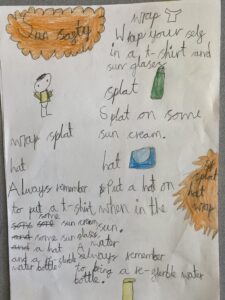 Sun safty
wrap
Wrap your self
in a t-shirt and
sun glases.
splat
Splat on some
sun cream.
wrap splat
hat
hat
Put a hat on
when in the
sun.
Always remember
to put a t-shirt
some
sun cream
and some sun glases
and a hat. A
and a
water bottle
A water
always remember
to bring a
water
bottle.
splat
hat
wrap